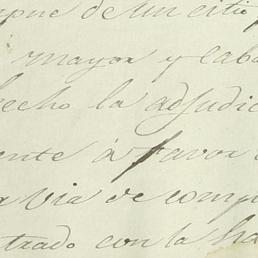 de un citio
mayor y cab
echo la adjudic
ente á favor
a via de comp
trado con la ha